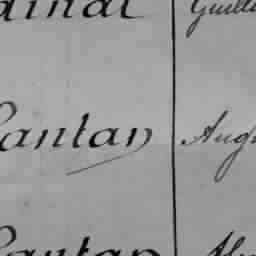 dinal Guill
Cantan Aug
Cantan